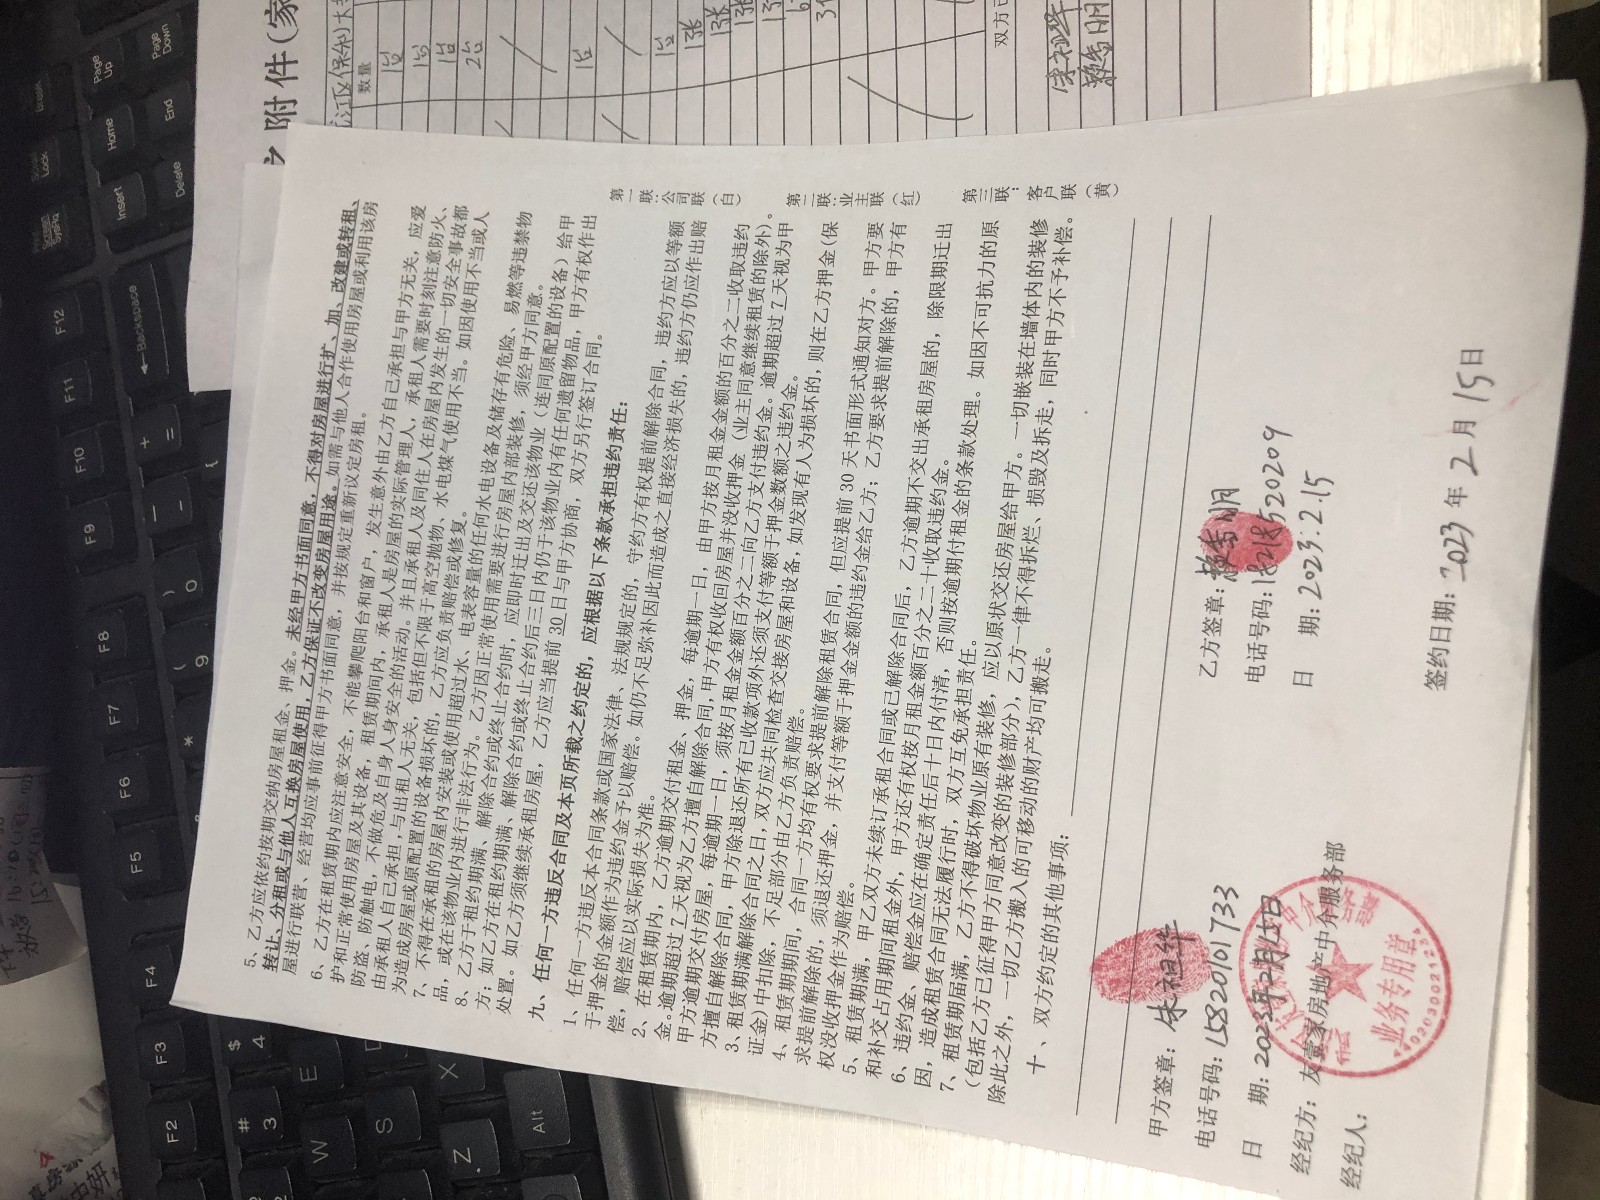 5、乙方应依约按期交纳房屋租金、押金。未经甲方书面同意，不得对房屋进行扩、加、改建或转租、
转让、分租或与他人互换房屋使用，乙方保证不改变房屋用途。如需与他人合作使用房屋或利用该房
屋进行联营、经营均应事前征得甲方书面同意，并按规定重新议定房租。
6、乙方在租赁期内应注意安全，不能攀爬阳台和窗户，发生意外由乙方自己承担与甲方无关，应爱
护和正常使用房屋及其设备，租赁期间内，承租人是房屋的实际管理人，承租人需要时刻注意防火、
防盗、防触电，不做危及自身人身安全的活动。并且承租人及同住人在房屋内发生的一切安全事故都
由承租人自己承担，与出租人无关，包括但不限于高空抛物、水电煤气使用不当。如因使用不当或人
为造成房屋或原配置的设备损坏的，乙方应负责赔偿或修复。
7、不得在承租的房屋内安装或使用超过水、电表容量的任何水电设备及储存有危险、易燃等违禁物
品，或在该物业内进行非法行为。乙方因正常使用需要进行房屋内部装修，须经甲方同意。
8、乙方于租约期满、解除合约或终止合约时，应即时迁出及交还该物业（连同原配置的设备）给甲
方；如乙方在租约期满、解除合约或终止合约后三日内仍于该物业内有任何遗留物品，甲方有权作出
处置。如乙方须继续承租房屋，乙方应当提前30日与甲方协商，双方另行签订合同。
九、任何一方违反合同及本页所载之约定的，应根据以下条款承担违约责任：
1、任何一方违反本合同条款或国家法律、法规规定的，守约方有权提前解除合同，违约方应以等额
于押金的金额作为违约金予以赔偿。如仍不足弥补因此而造成之直接经济损失的，违约方仍应作出赔
偿，赔偿应以实际损失为准。
2、在租赁期内，乙方逾期交付租金、押金，每逾期一日，由甲方按月租金金额的百分之二收取违约
金。逾期超过7天视为乙方擅自解除合同，甲方有权收回房屋并没收押金（业主同意继续租赁的除外）。
甲方逾期交付房屋，每逾期一日，须按月租金金额百分之二向乙方支付违约金。逾期超过7天视为甲
方擅自解除合同，甲方除退还所有已收款项外还须支付等额于押金数额之违约金。
3、租赁期满解除合同之日，双方应共同检查交接房屋和设备，如发现有人为损坏的，则在乙方押金(保
证金)中扣除，不足部分由乙方负责赔偿。
4、租赁期期间，合同一方均有权要求提前解除租赁合同，但应提前30天书面形式通知对方。甲方要
求提前解除的，须退还押金，并支付等额于押金金额的违约金给乙方；乙方要求提前解除的，甲方有
权没收押金作为赔偿。
5、租赁期满，甲乙双方未续订承租合同或已解除合同后，乙方逾期不交出承租房屋的，除限期迁出
和补交占用期间租金外，甲方还有权按月租金额百分之二十收取违约金。
6、违约金、赔偿金应在确定责任后十日内付清，否则按逾期付租金的条款处理。如因不可抗力的原
因，造成租赁合同无法履行时，双方互免承担责任。
7、租赁期届满，乙方不得破坏物业原有装修，应以原状交还房屋给甲方。一切嵌装在墙体内的装修
（包括乙方已征得甲方同意改变的装修部分），乙方一律不得拆烂、损毁及拆走，同时甲方不予补偿。
除此之外，一切乙方搬入的可移动的财产均可搬走。
十、双方约定的其他事项：
第一联：公司联（白）
第二联：业主联（红）
第三联：客户联（黄）
甲方签章：朱祖华
电话号码：15820101733
日 期：2023年2月15日
经纪方：友壹家房地产中介服务部
经纪人：
乙方签章：赖秀明
电话号码：18218520209
日 期：2023.2.15
签约日期：2023年2月15日
业务专用章
附件（家
数量
1台
1台
1台
2台
1台
1台
1张
3张
1张
双方已
F2
F3
F4
F5
F6
F7
F8
F9
F10
F11
F12
Backspace
Insert
Home
Page Up
Delete
End
Page Down
W
E
S
Z
X
Alt
# 3
$ 4
( 9
) 0